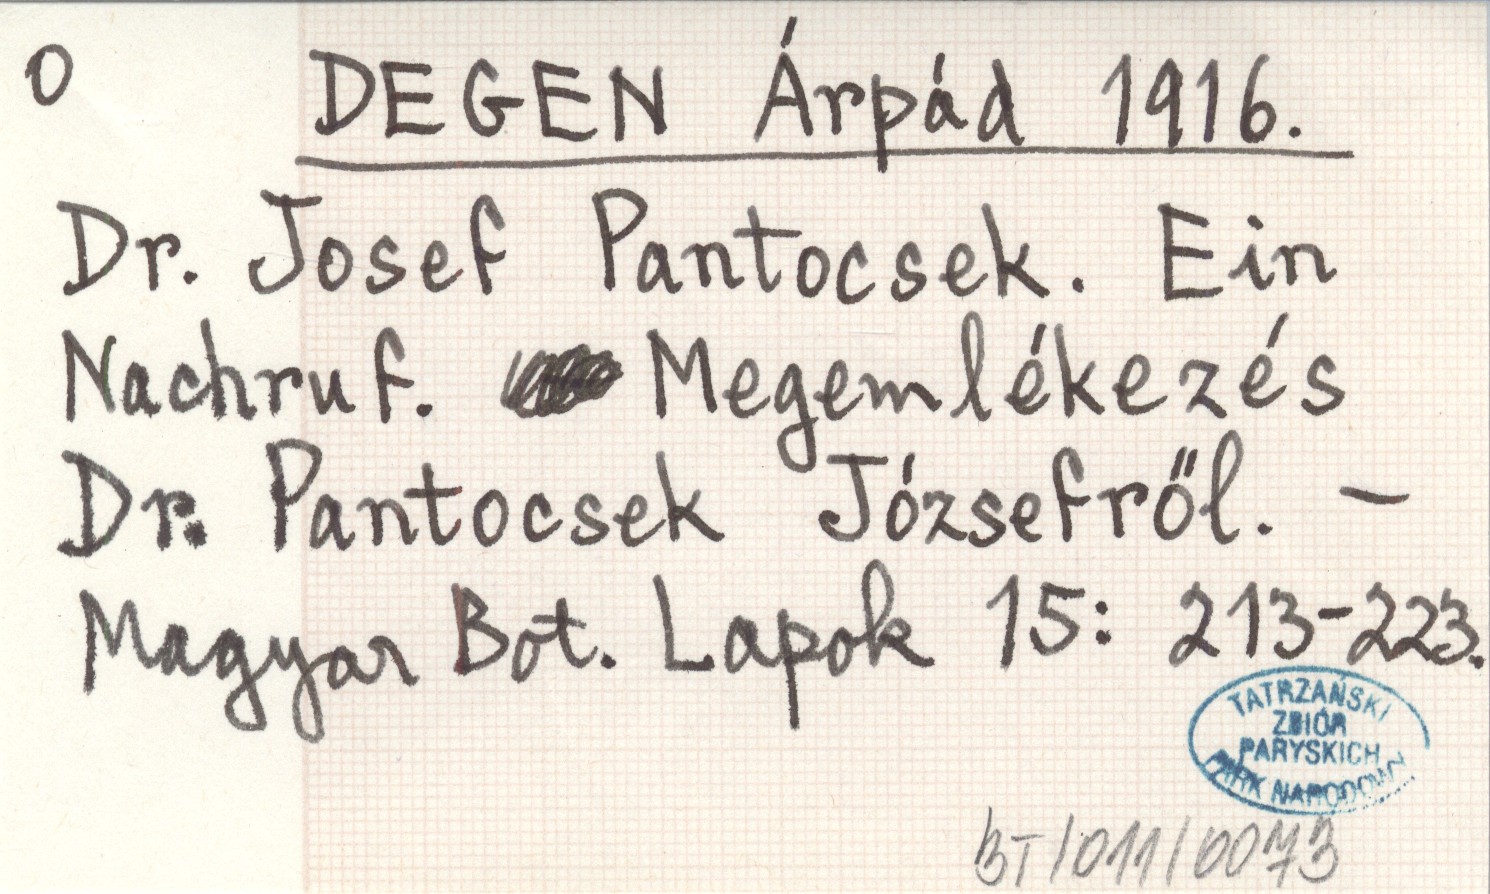 O DEGEN Árpád 1916.
Dr. Josef Pantocsek. Ein
Nachruf. Megemlékezés
Dr. Pantocsek Józsefről. –
Magyar Bot. Lapok 15: 213-223.
TATRZAŃSKI
ZBIÓR
PARYSKICH
PARK NARODOWY
BT/011/0073